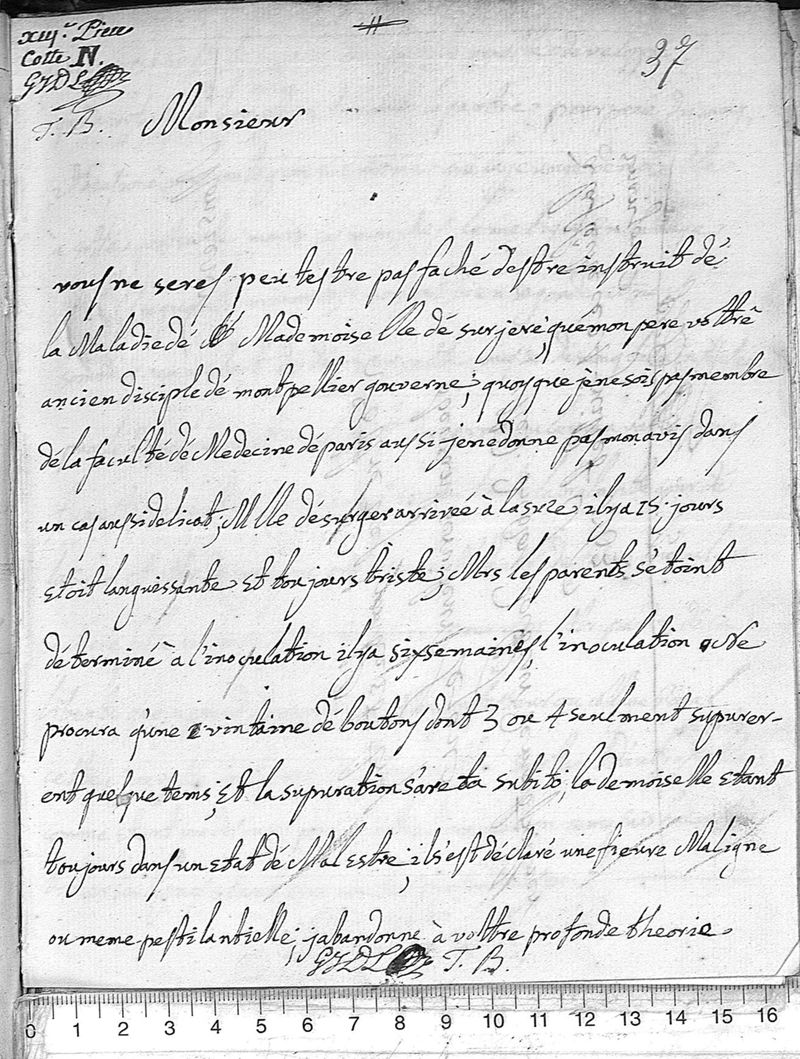 xiijᵉ. Piece
Cotte N.
37
T. B. Monsieur
vous ne seres peutestre pas faché destre instruit dé
la Maladie dé Mademoiselle dé surjeré, qué mon pere voltre
ancien disciple dé montpellier gouverne; quoyque jè ne sois pas membre
dé la faculté dé Medecine dé paris aussi je ne donne pas mon avis dans
un cas aussi delicat; Mlle dé surger arriveé à la suze il ya 15 jours
Etoit languissante Et toujours triste; Mrs les parents s'étoint
déterminé à l'inoculation il ya six semaines, l'inoculation Ne
procura q'une vintaine dé boutons dont 3 ou 4 seulment supurer-
ent quelque tems; Et la supuration s'areta subito; la demoiselle Etant
toujours dans un Etat dé Mal estre; il s'est déclaré une fievre Maligne
ou meme pestilantielle; j'abandonne à voltre profonde theorie.
T. B.
0 1 2 3 4 5 6 7 8 9 10 11 12 13 14 15 16